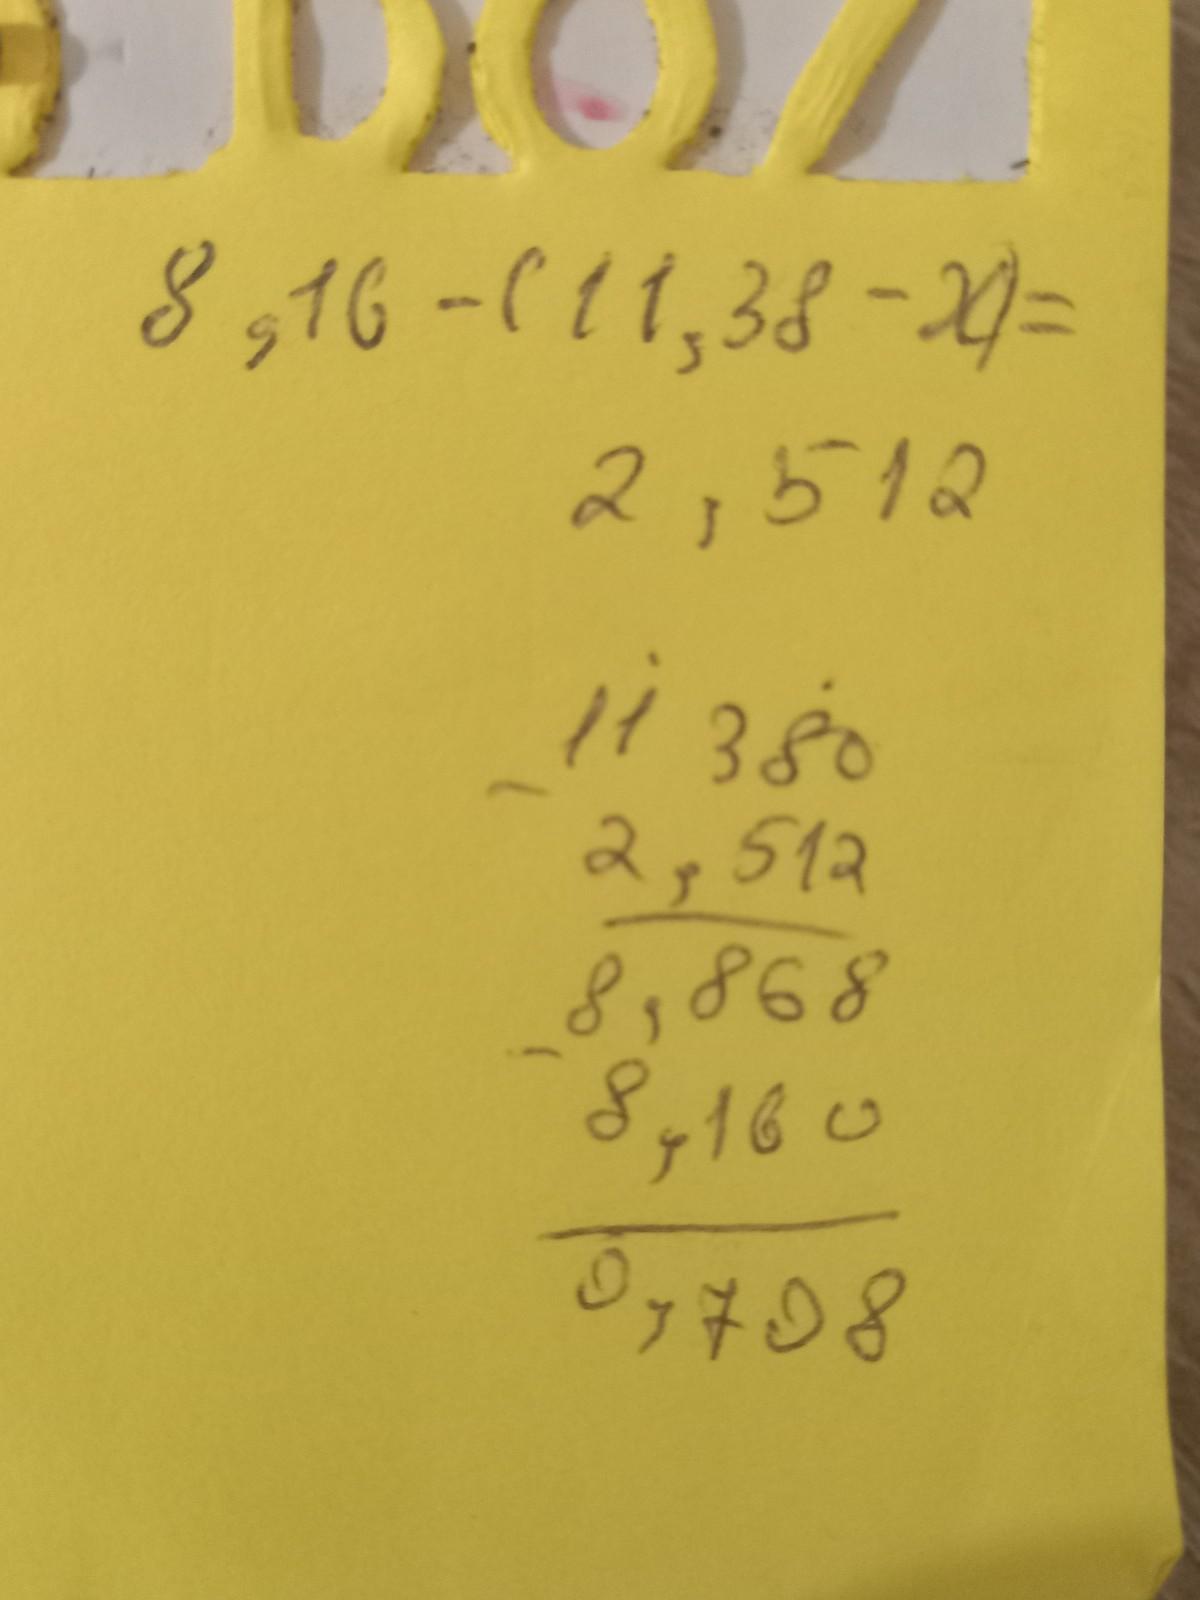 8,16-(11,38-x)=
2,512
11 380
- 2,512
8,868
- 8,160
0,708